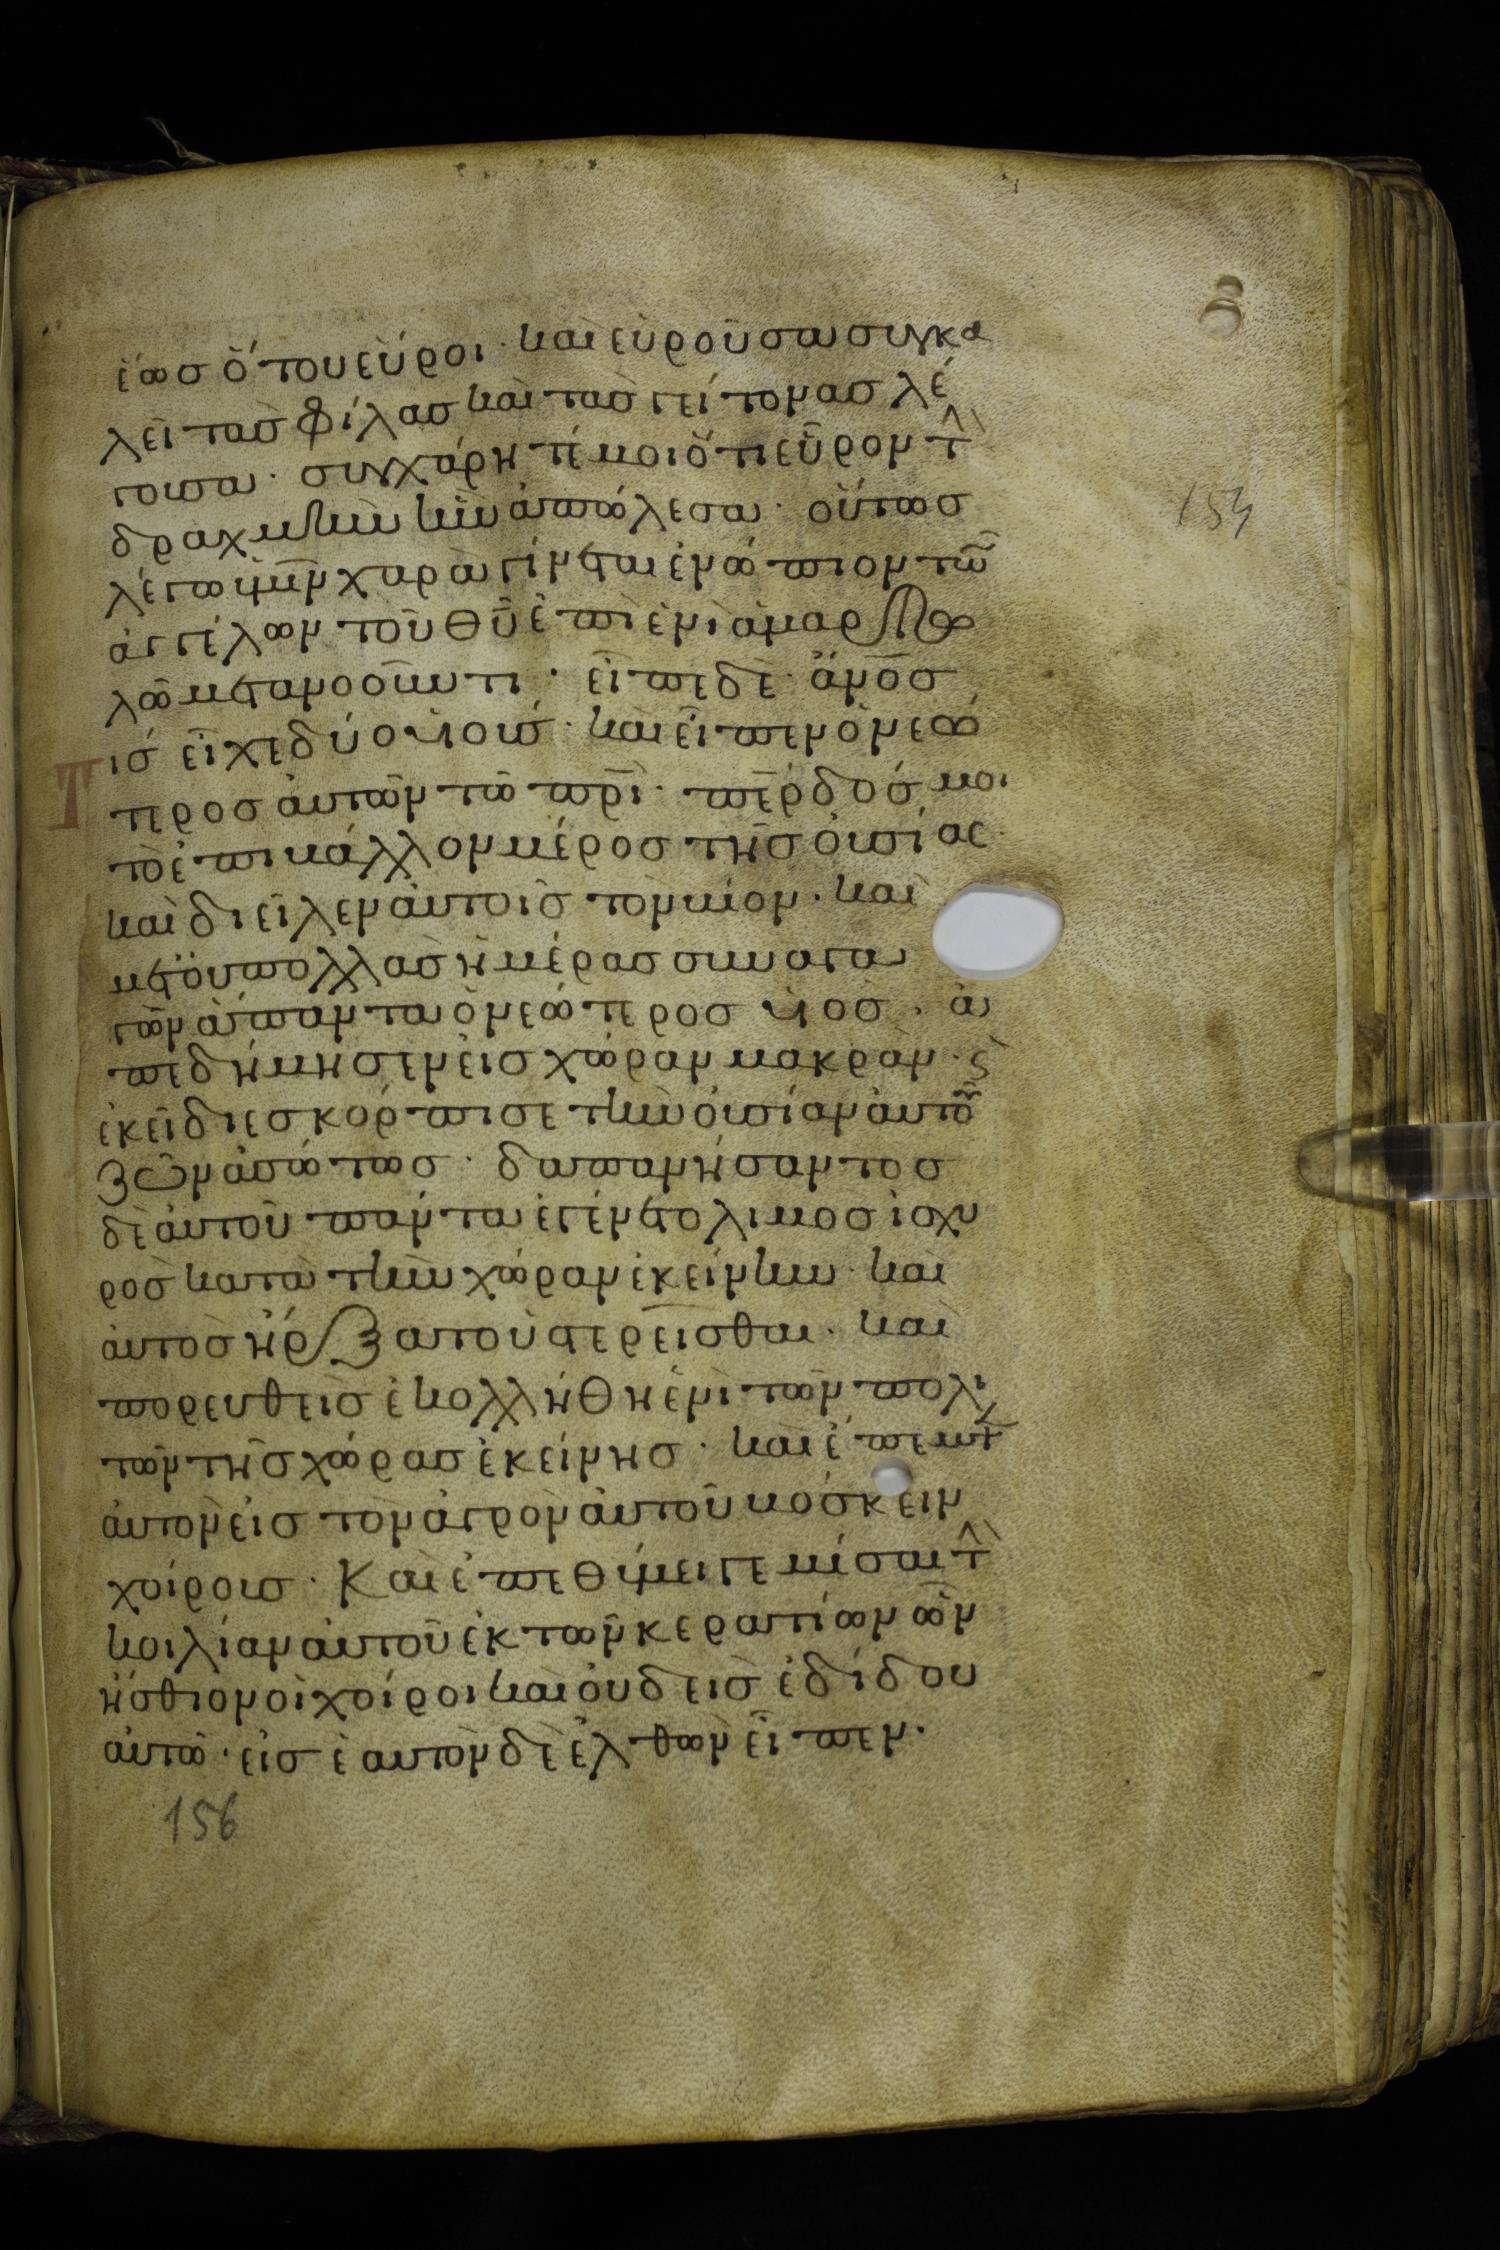 ἕωσ ὅτου εὕροι · και εὑροῦσα συγκα
λεῖ τὰσ φίλασ και τὰσ γείτονασ λέ
γουσα · συγχάρητέ μοι ὅτι εὗρον τ̂
δραχμὴν ἣν ἀπώλεσα · οὕτωσ
λέγω ὑμῖν χαρὰ γίνεται ἐνώπιον τῶ̅
ἀγγέλων τοῦ θ̅υ̅ ἐπὶ ἑνὶ ἁμαρτω
λῶ μετανοοῦντι · εἶπε δὲ · ἄν̅ο̅σ
τισ εἶχε δύο ὑιούσ · και εἶπεν ὁ νεώ
τεροσ ἀυτῶν τῶ π̅ρ̅ι̅ · π̅ε̅ρ δόσ μοι
τὸ ἐπιβάλλον μέροσ τῆσ οὐσίας ·
και διεῖλεν ἀυτοῖσ τὸν βίον · και
μετ' οὐ πολλὰσ ἡμέρασ συναγα
γῶν ἅπαντα ὁ νεώτεροσ ὑιὸσ · ἀ
πεδήμησεν εἰσ χώραν μακραν · ϗ
ἐκεῖ διεσκόρπισε τὴν οὐσίαν ἀυτοῦ
ζῶν ἀσώτωσ · δαπανήσαντοσ
δὲ ἀυτοῦ πάντα ἐγένετο λιμοσ ἰσχυ
ροσ κατὰ τὴν χώραν ἐκείνην · και
ἀυτοσ ἤρξατο ὑστερεῖσθαι · και
πορευθεισ ἐκολλήθη ἑνὶ τῶν πολι
τῶν τῆσ χώρασ ἐκείνησ · και ἔπεμψεν
ἀυτον εἰσ τον ἀγρον ἀυτοῦ βόσκειν
χοίρουσ · Και ἐπεθύμει γεμίσαι τ̂
κοιλίαν ἀυτοῦ ἐκ τῶν κερατίων ὧν
ἤσθιον οἱ χοίροι και οὐδεισ ἐδίδου
ἀυτῶ · εἰσ ἑαυτὸν δὲ ἐλθων εἶπεν ·
154
156